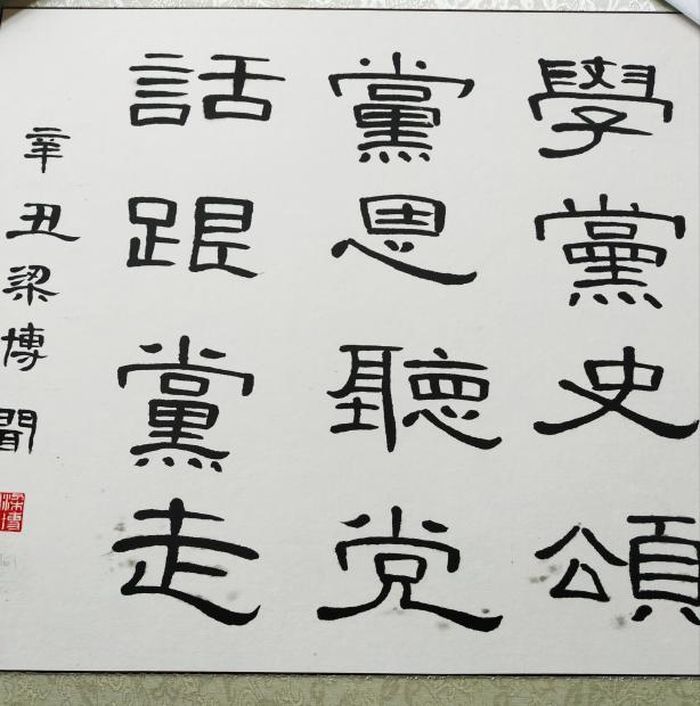 學黨史頌
黨恩聽党
話跟黨走
辛丑梁博聞
梁博